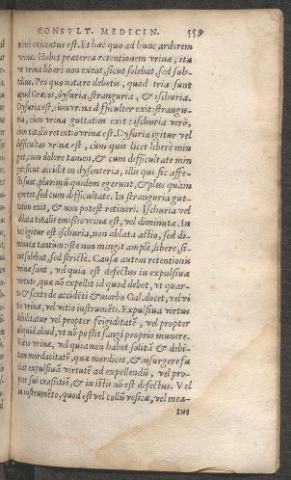 CONSVLT. MEDICIN. 559
exiccatus est. Et hæc quo ad hunc ardorem
vrinæ. Habet præterea retentionem vrinæ, ita
vt vrina liberè non exeat, sicut solebat, sed sub-
Pro quo notare debetis, quòd tria sunt
apud Græcos, dysuria, stranguria, & ischuria.
Dysuria est, cùm vrina difficulter exit: strangu-
ria, cùm vrina guttatim exit: ischuria verò,
cùm retentio vrinæ est. Dysuria igitur vel
difficultas vrinæ est, cùm quis licet liberè min
git, cum dolore tamen, & cum difficultate min
git: sicut accidit in dysenteria, illi qui sic affe-
cti sunt, plurimũ quidem egerunt, & plus quam
oportet, sed cum difficultate. In stranguria gut-
tatim exit, & non potest retineri. Ischuria vel
ablata totalis emissio vrinæ est, vel diminuta. In
hoc igitur est ischuria, non ablata actio, sed di-
minuta tantùm: iste non mingit amplè, liberè, si-
cut solebat, sed strictè. Causæ autem retentionis
vrinæ sunt, vel quia est defectus in expulsiua
virtute, quæ nõ expellit id quod debet, vt quar-
to & sexto de accidẽti & morbo Gal. docet, vel vi
tio vrinæ, vel vitio instrumẽti. Expulsiua virtus
debilitatur vel propter frigiditatẽ, vel propter
aliquid aliud, vt nõ possit fungi proprio munere.
Vitio vrinæ, vel quia non habet solitã & debi-
tam mordacitatẽ, quæ mordicet, & insurgere fa
ciat expulsiuã virtutẽ ad expellendũ, vel pro-
pter sui crassitiẽ, & in istis nõ est defectus. Vel
instrumẽto, quod est vel collũ vesicæ, vel mea-
tus